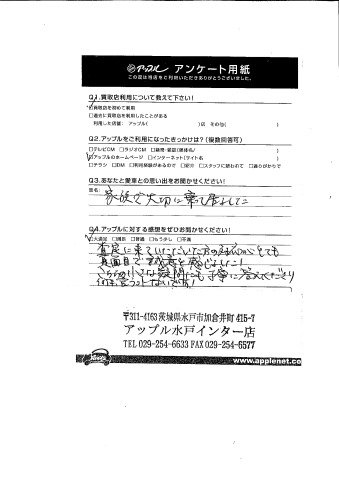 アップル アンケート用紙
この度は当店をご利用いただきありがとうございました。
Q1.買取店利用について教えて下さい!
買取店を初めて利用
□過去に買取店を利用したことがある
利用した店舗: アップル( )店 その他( )
Q2.アップルをご利用になったきっかけは?(複数回答可)
□テレビCM □ラジオCM □新聞・雑誌(媒体名/ )
アップルのホームページ □インターネット(サイト名 )
□チラシ □DM □利用経験があるので □紹介 □スタッフに勧められて □通りがかりで
Q3.あなたと愛車との思い出をお聞かせください!
家族で大切に乗て居ました
Q4.アップルに対する感想をぜひお聞かせください!
大満足 □満足 □普通 □もう少し □不満
査定に来ていただいた方の対応がとても
真面目で誠意を感じました!
こちらの小さな疑問にも丁寧に答えてくださり
〒311-4163茨城県水戸市加倉井町415-7
アップル水戸インター店
TEL 029-254-6633 FAX 029-254-6577
www.applenet.co